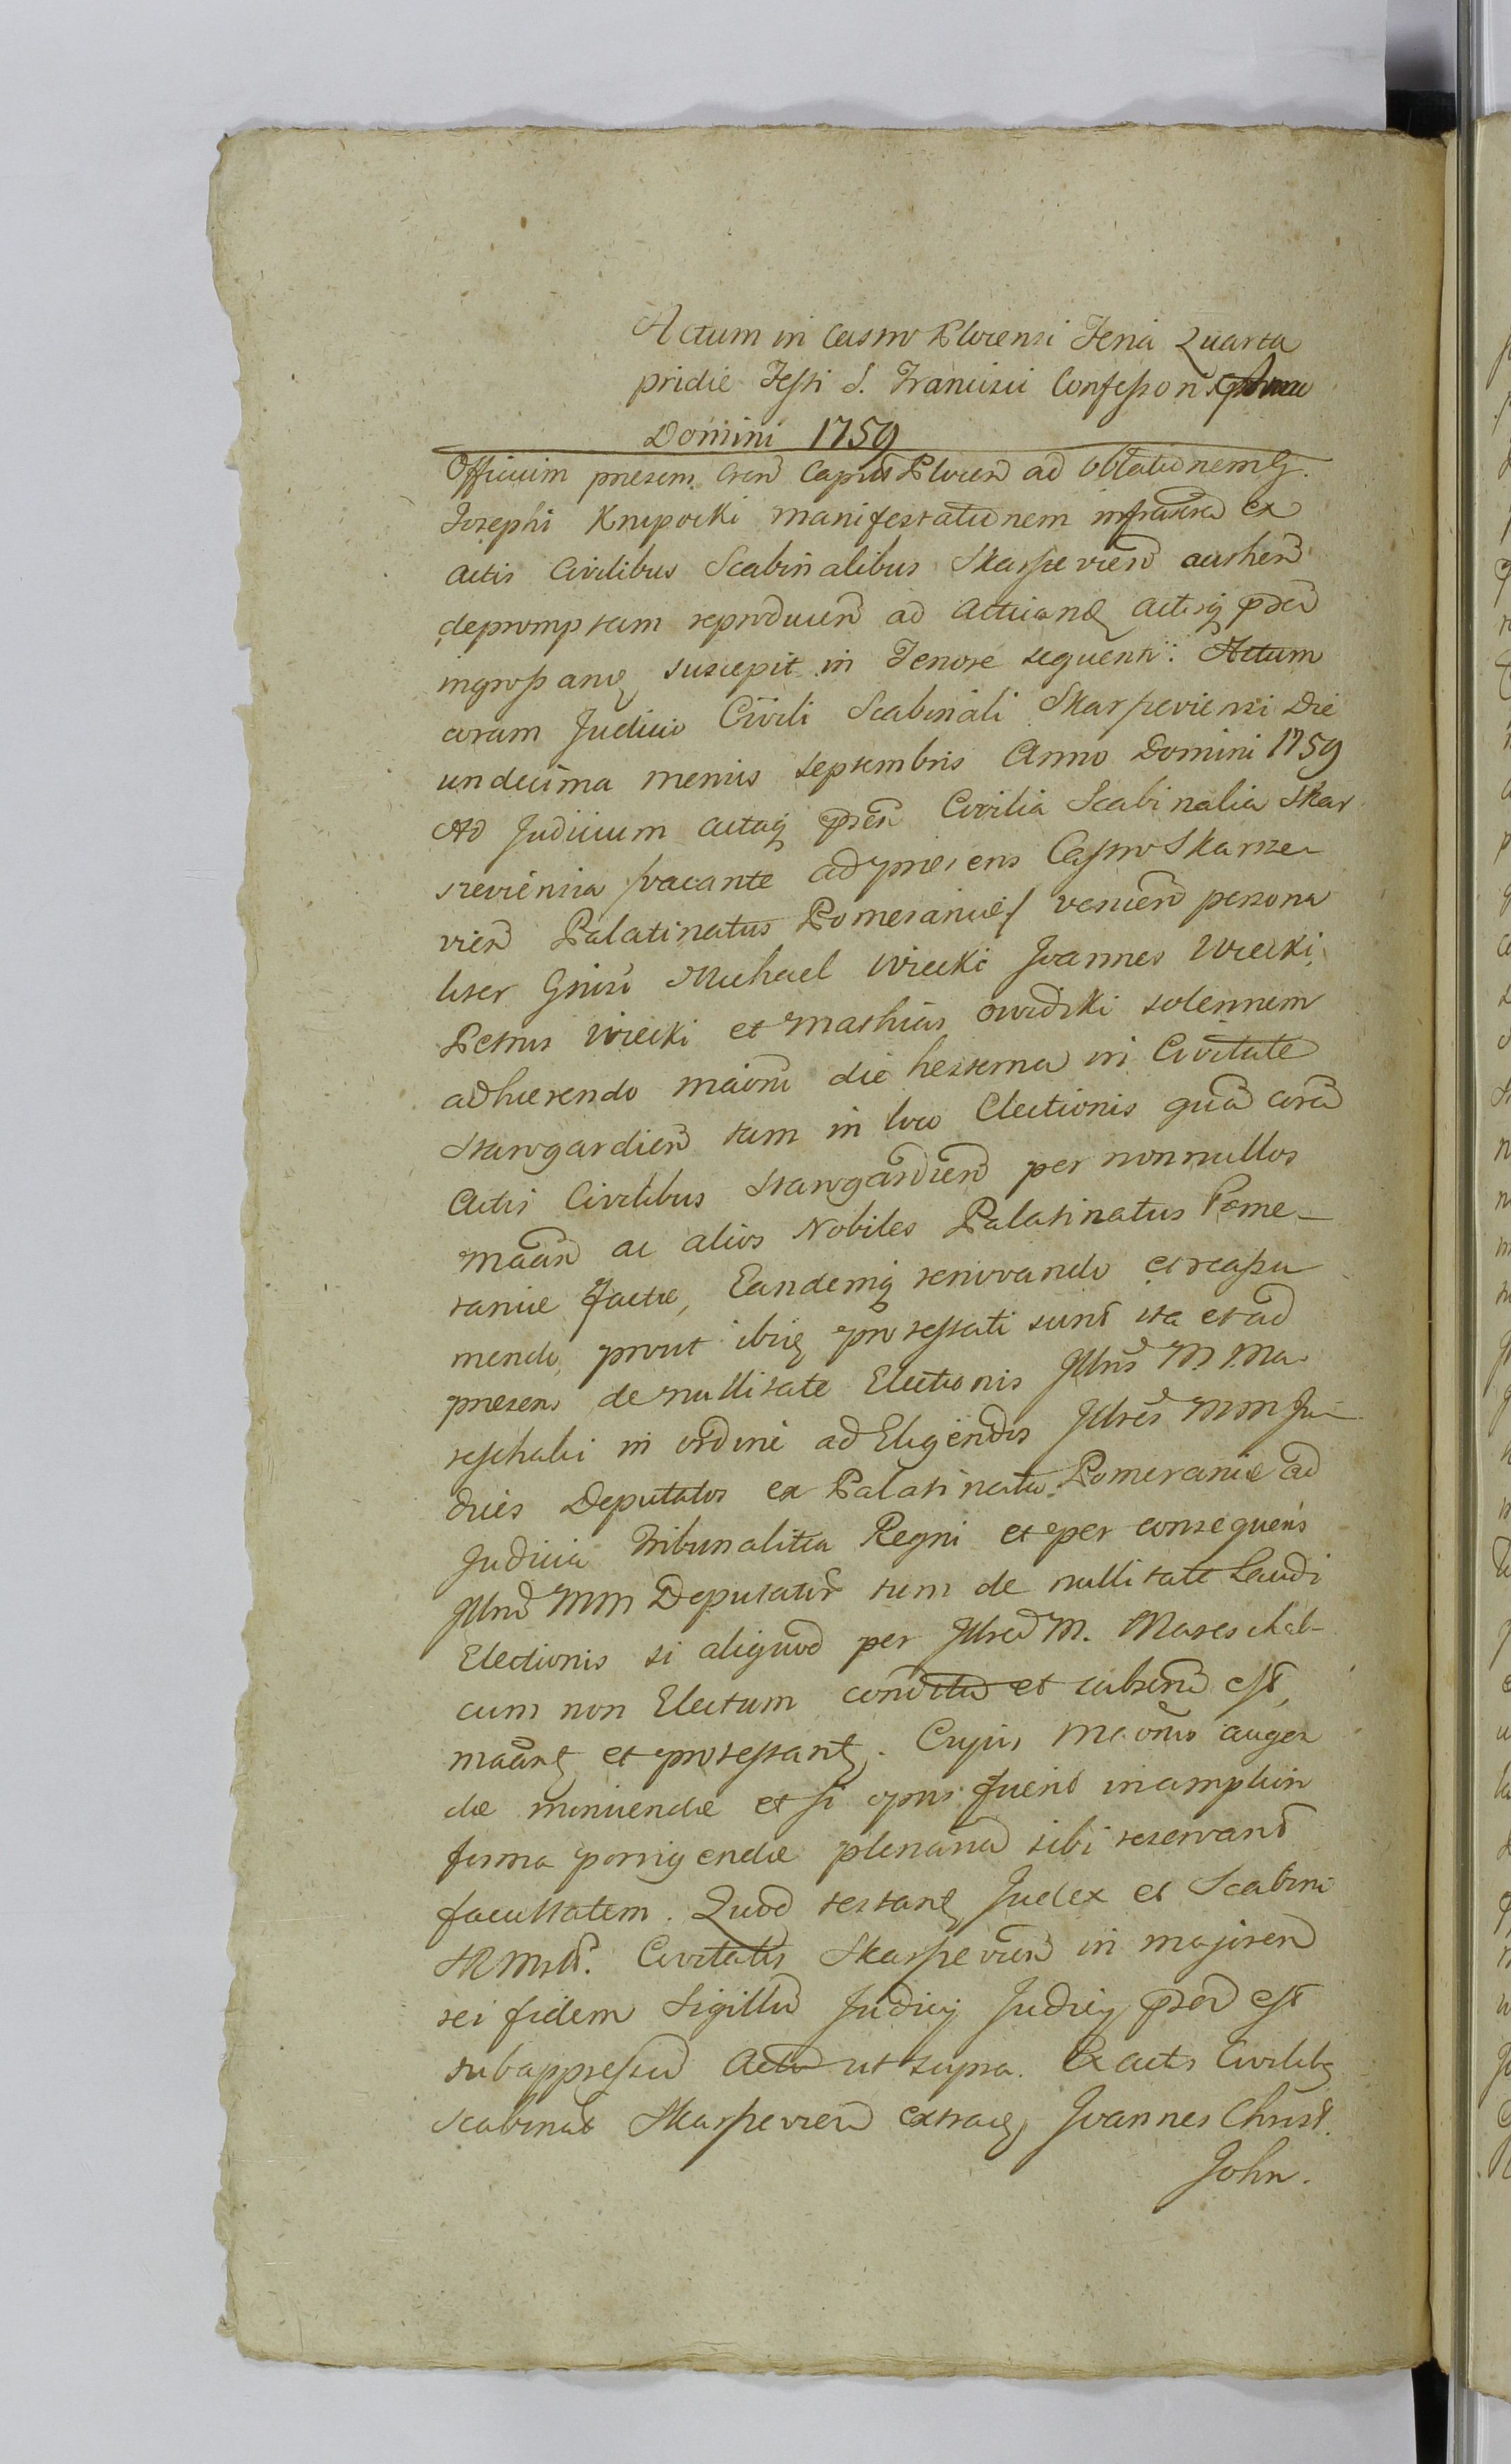 Actum in Castro Plocensi Feria Quarta
pridie Festi S. Francisci Confessoris Anno
Domini 1759
Officium praesens Cren Capitt Plocen ad oblationem G.
Josephi Krupocki manifestationem infrascrt ex
actis Civilibus Scabinalibus Skarszevien authen
depromptam reproducen ad acticandq actisq praen
ingrossandq suscepit in Tenore sequenti: Actum
coram Judicio Civili Scabinali Skarszeviensi Die
undecima mensis septembris Anno Domini 1759
Ad Judicium actaq praesen Civilia Scabinalia Skar
szeviensia /vacante ad praesens Castro Skarsze
vien Palatinatus Pomeraniae/ venien persona
liter Gnisi Michael Wiecki Joannes Wiecki,
Petrus Wiecki et Mathias Owidzki solennem
adhaerendo maoni die hesterna in Civitate
Starogardien tam in loco Electionis quam coram
Actis Civilibus Starogardien per nonnullos
maan ac alios Nobiles Palatinatus Pome-
raniae factae, Eandemq renovando et reassu
mendo, prout ibiq protestati sunt ita et ad
praesens de nullitate Electionis Illris M. Ma
reschalci in ordine ad Eligendos Illres MM Ju
dices Deputatos ex Palatinatu Pomeraniae ad
Judicia Tribunalitia Regni et per consequens
Illrm MM Deputator tum de nullitate Laudi
Electionis si aliquod per Illrem M. Mareschal-
cum non Electum conditu et subscri est,
maantq et protestantq. Cujus Maonis augen
dae minuendae et si opus fuerit in ampliori
forma porrigendae plenariam sibi reservant
facultatem. Quod testantq Judex et Scabini
SRMttis. Civitatis Skarszevien in majorem
rei fidem Sigillum Judicij Judicij praen est
subappressum Actum ut supra. Ex actis Civilibq
Scabinal Skarszevien extracq Joannes Christ.
John.